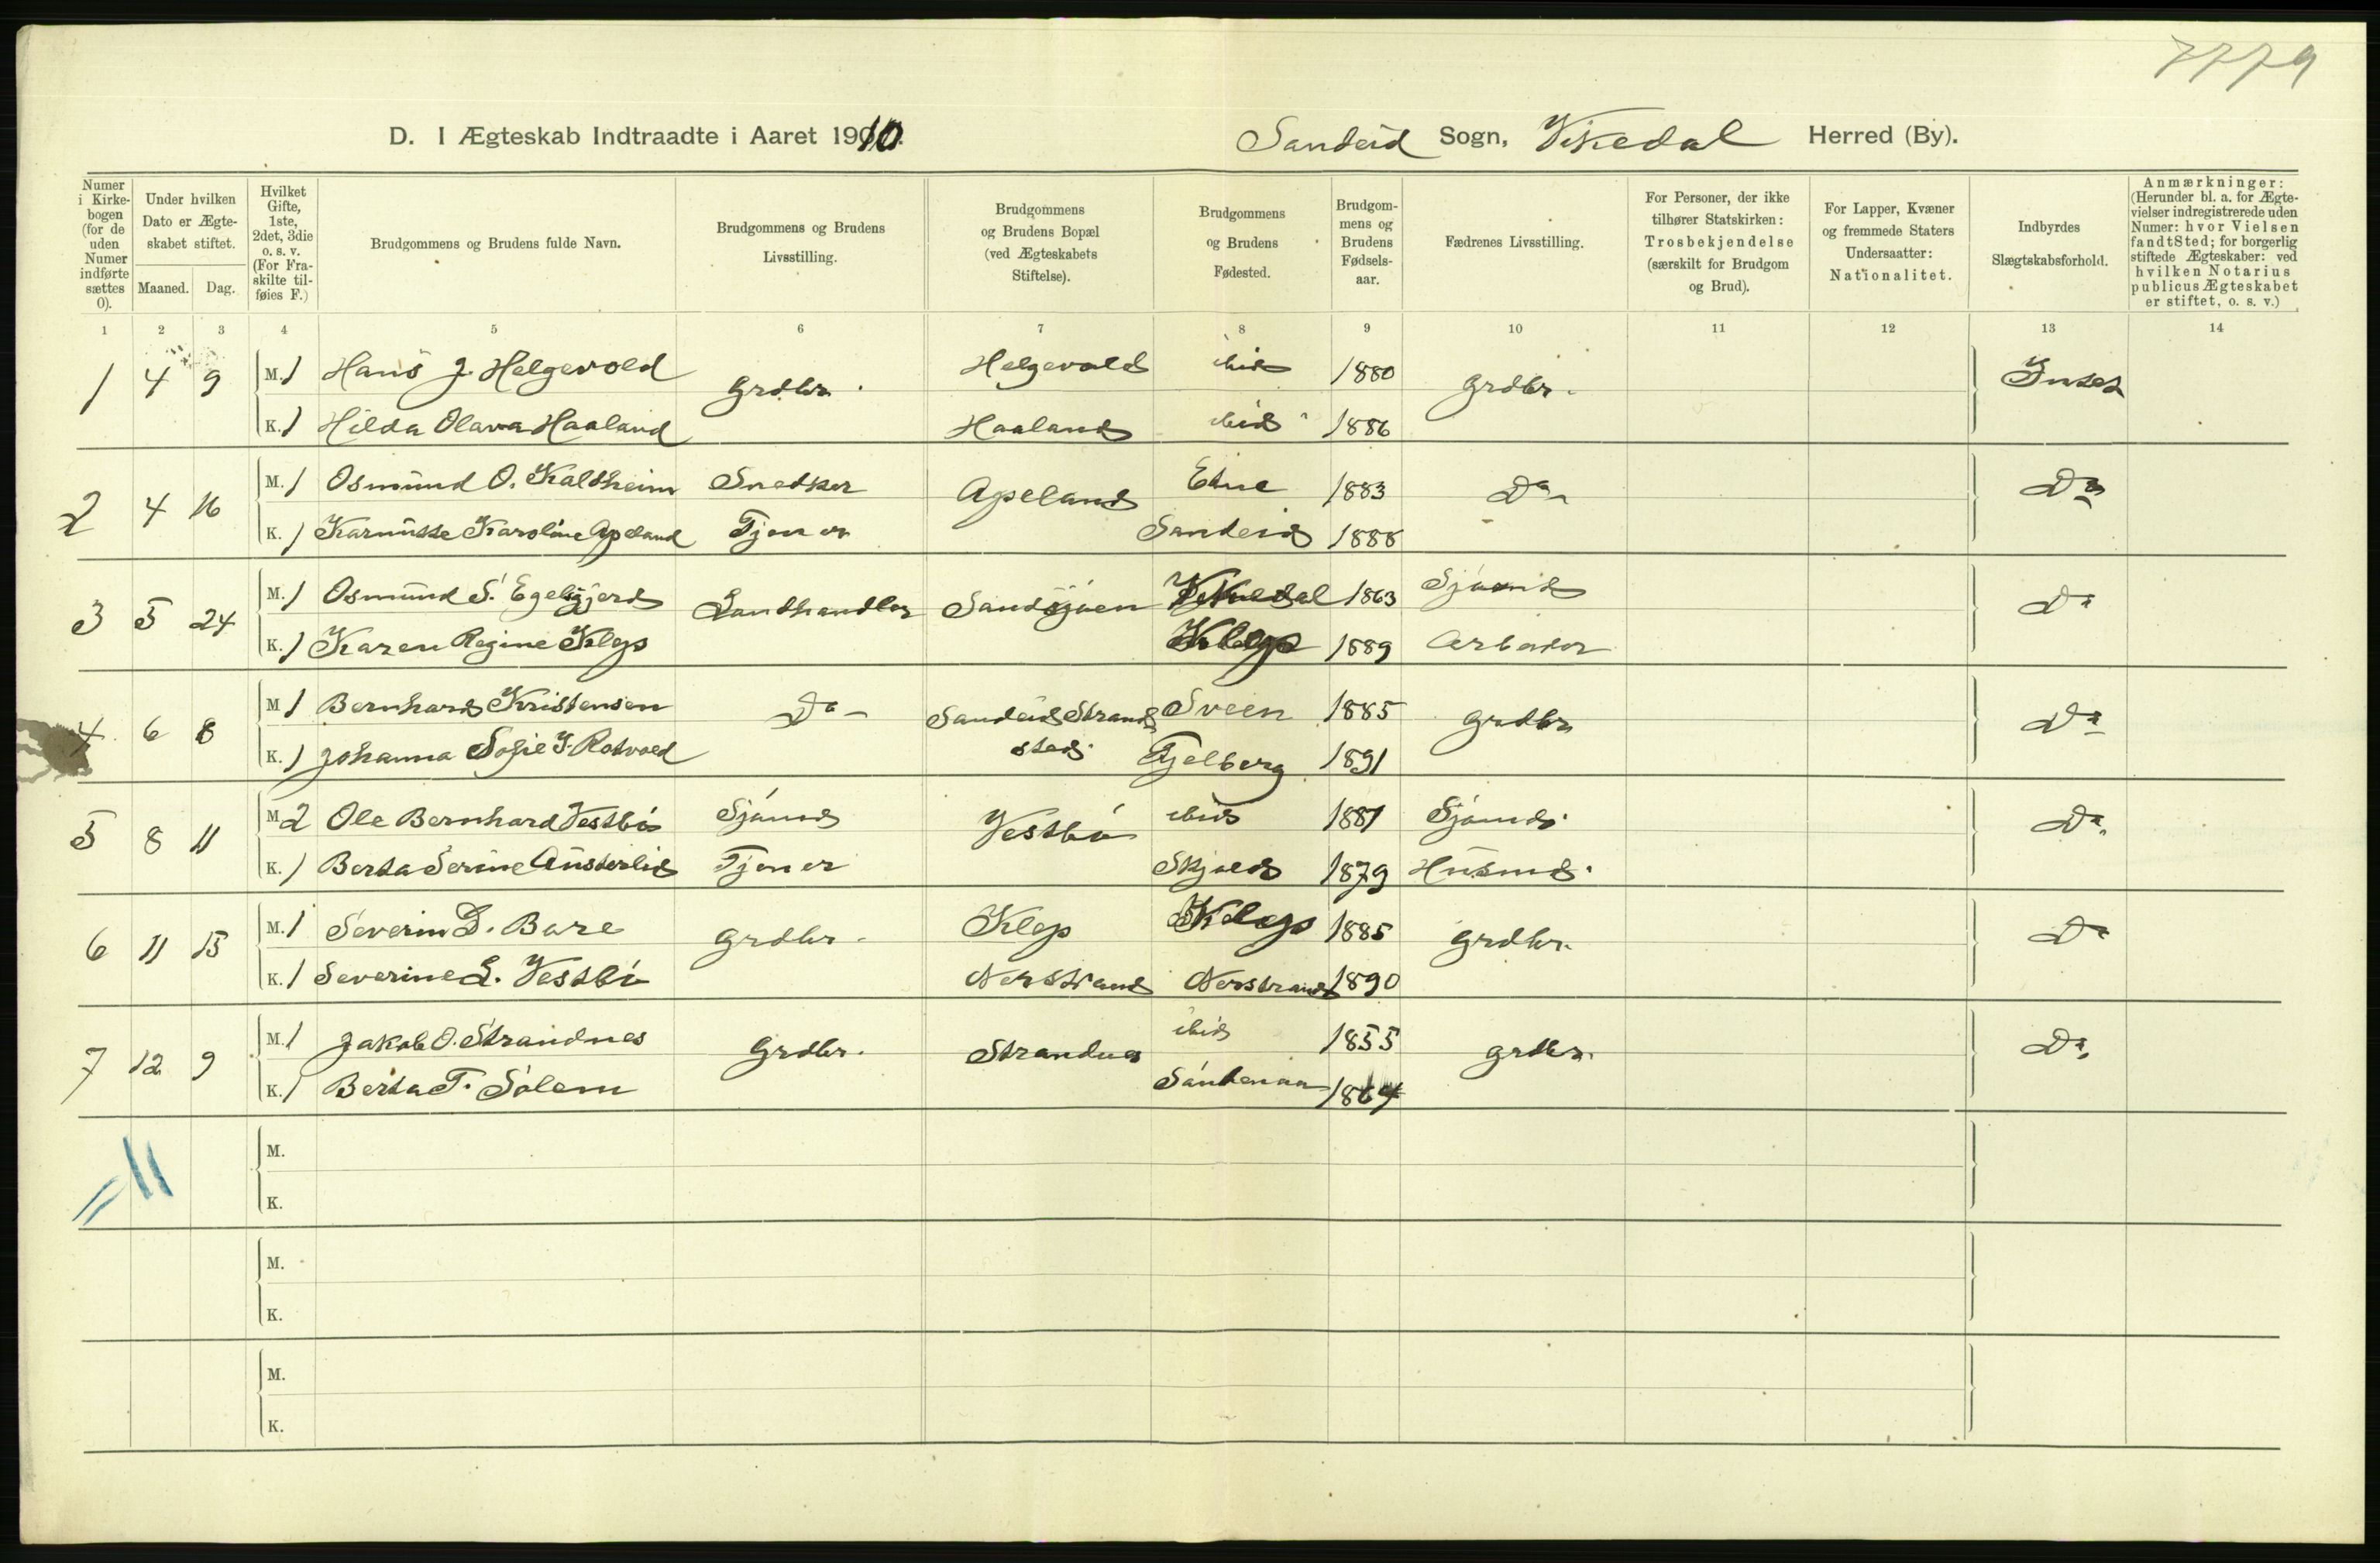 7779
D. I Ægteskab Indtraadte i Aaret 1910. Sandeid Sogn, Vikedal Herred (By).
Numer i Kirkebogen (for de uden Numer indførte sættes 0).
Under hvilken Dato er Ægteskabet stiftet.
Maaned. Dag.
Hvilket Gifte, 1ste, 2det, 3die o. s. v. (For Fraskilte tilføies F.)
Brudgommens og Brudens fulde Navn.
Brudgommens og Brudens Livsstilling.
Brudgommens og Brudens Bopæl (ved Ægteskabets Stiftelse).
Brudgommens og Brudens Fødested.
Brudgommens og Brudens Fødselsaar.
Fædrenes Livsstilling.
For Personer, der ikke tilhører Statskirken: Trosbekjendelse (særskilt for Brudgom og Brud).
For Lapper, Kvæner og fremmede Staters Undersaatter: Nationalitet.
Indbyrdes Slægtskabsforhold.
Anmærkninger: (Herunder bl. a. for Ægtevielser indregistrerede uden Numer: hvor Vielsen fandt Sted; for borgerlig stiftede Ægteskaber: ved hvilken Notarius publicus Ægteskabet er stiftet, o. s. v.)
1 2 3 4 5 6 7 8 9 10 11 12 13 14
1 4 9 M. 1 Hans J. Helgevold Grdbr. Helgevold ibid 1880 Grdbr. Intet
K. 1 Hilda Olava Haaland Haaland ibid 1886
2 4 16 M. 1 Osmund O. Kaltheim Snedker Apeland Etne 1883 Do
K. 1 Karoline Apeland Tjener Sandeid 1888 Do
3 5 24 M. 1 Osmund S. Landhandler Vikedal 1863 Sjømd
K. 1 Karen Regine Klep Klep 1889 Arbeider Do
4 6 8 M 1 Bernhard Kristensen Do Sandeid Strand Sveen 1885 Grdbr Do
K. 1 Johanna Sofie J. Rotvold sted. Fjelberg 1891
5 8 11 M 2 Ole Bernhard Vestbø Sjømd Vestbø ibid 1881 Sjømd. Do
K. 1 Berta Serine Austerlid Tjener Skjold 1879 Husmd.
6 11 15 M. 1 Severin D. Bare Grdbr. Klep Klep 1885 Grdbr. Do
K. 1 Severine L. Vestbø Nerstrand Nerstrand 1890
7 12 9 M. 1 Jakob O. Strandnes Grdbr. Strandnes ibid 1855 Grdbr. Do
K. 1 Berta T. Solem 1864
=11 M.
K.
M.
K.
M.
K.